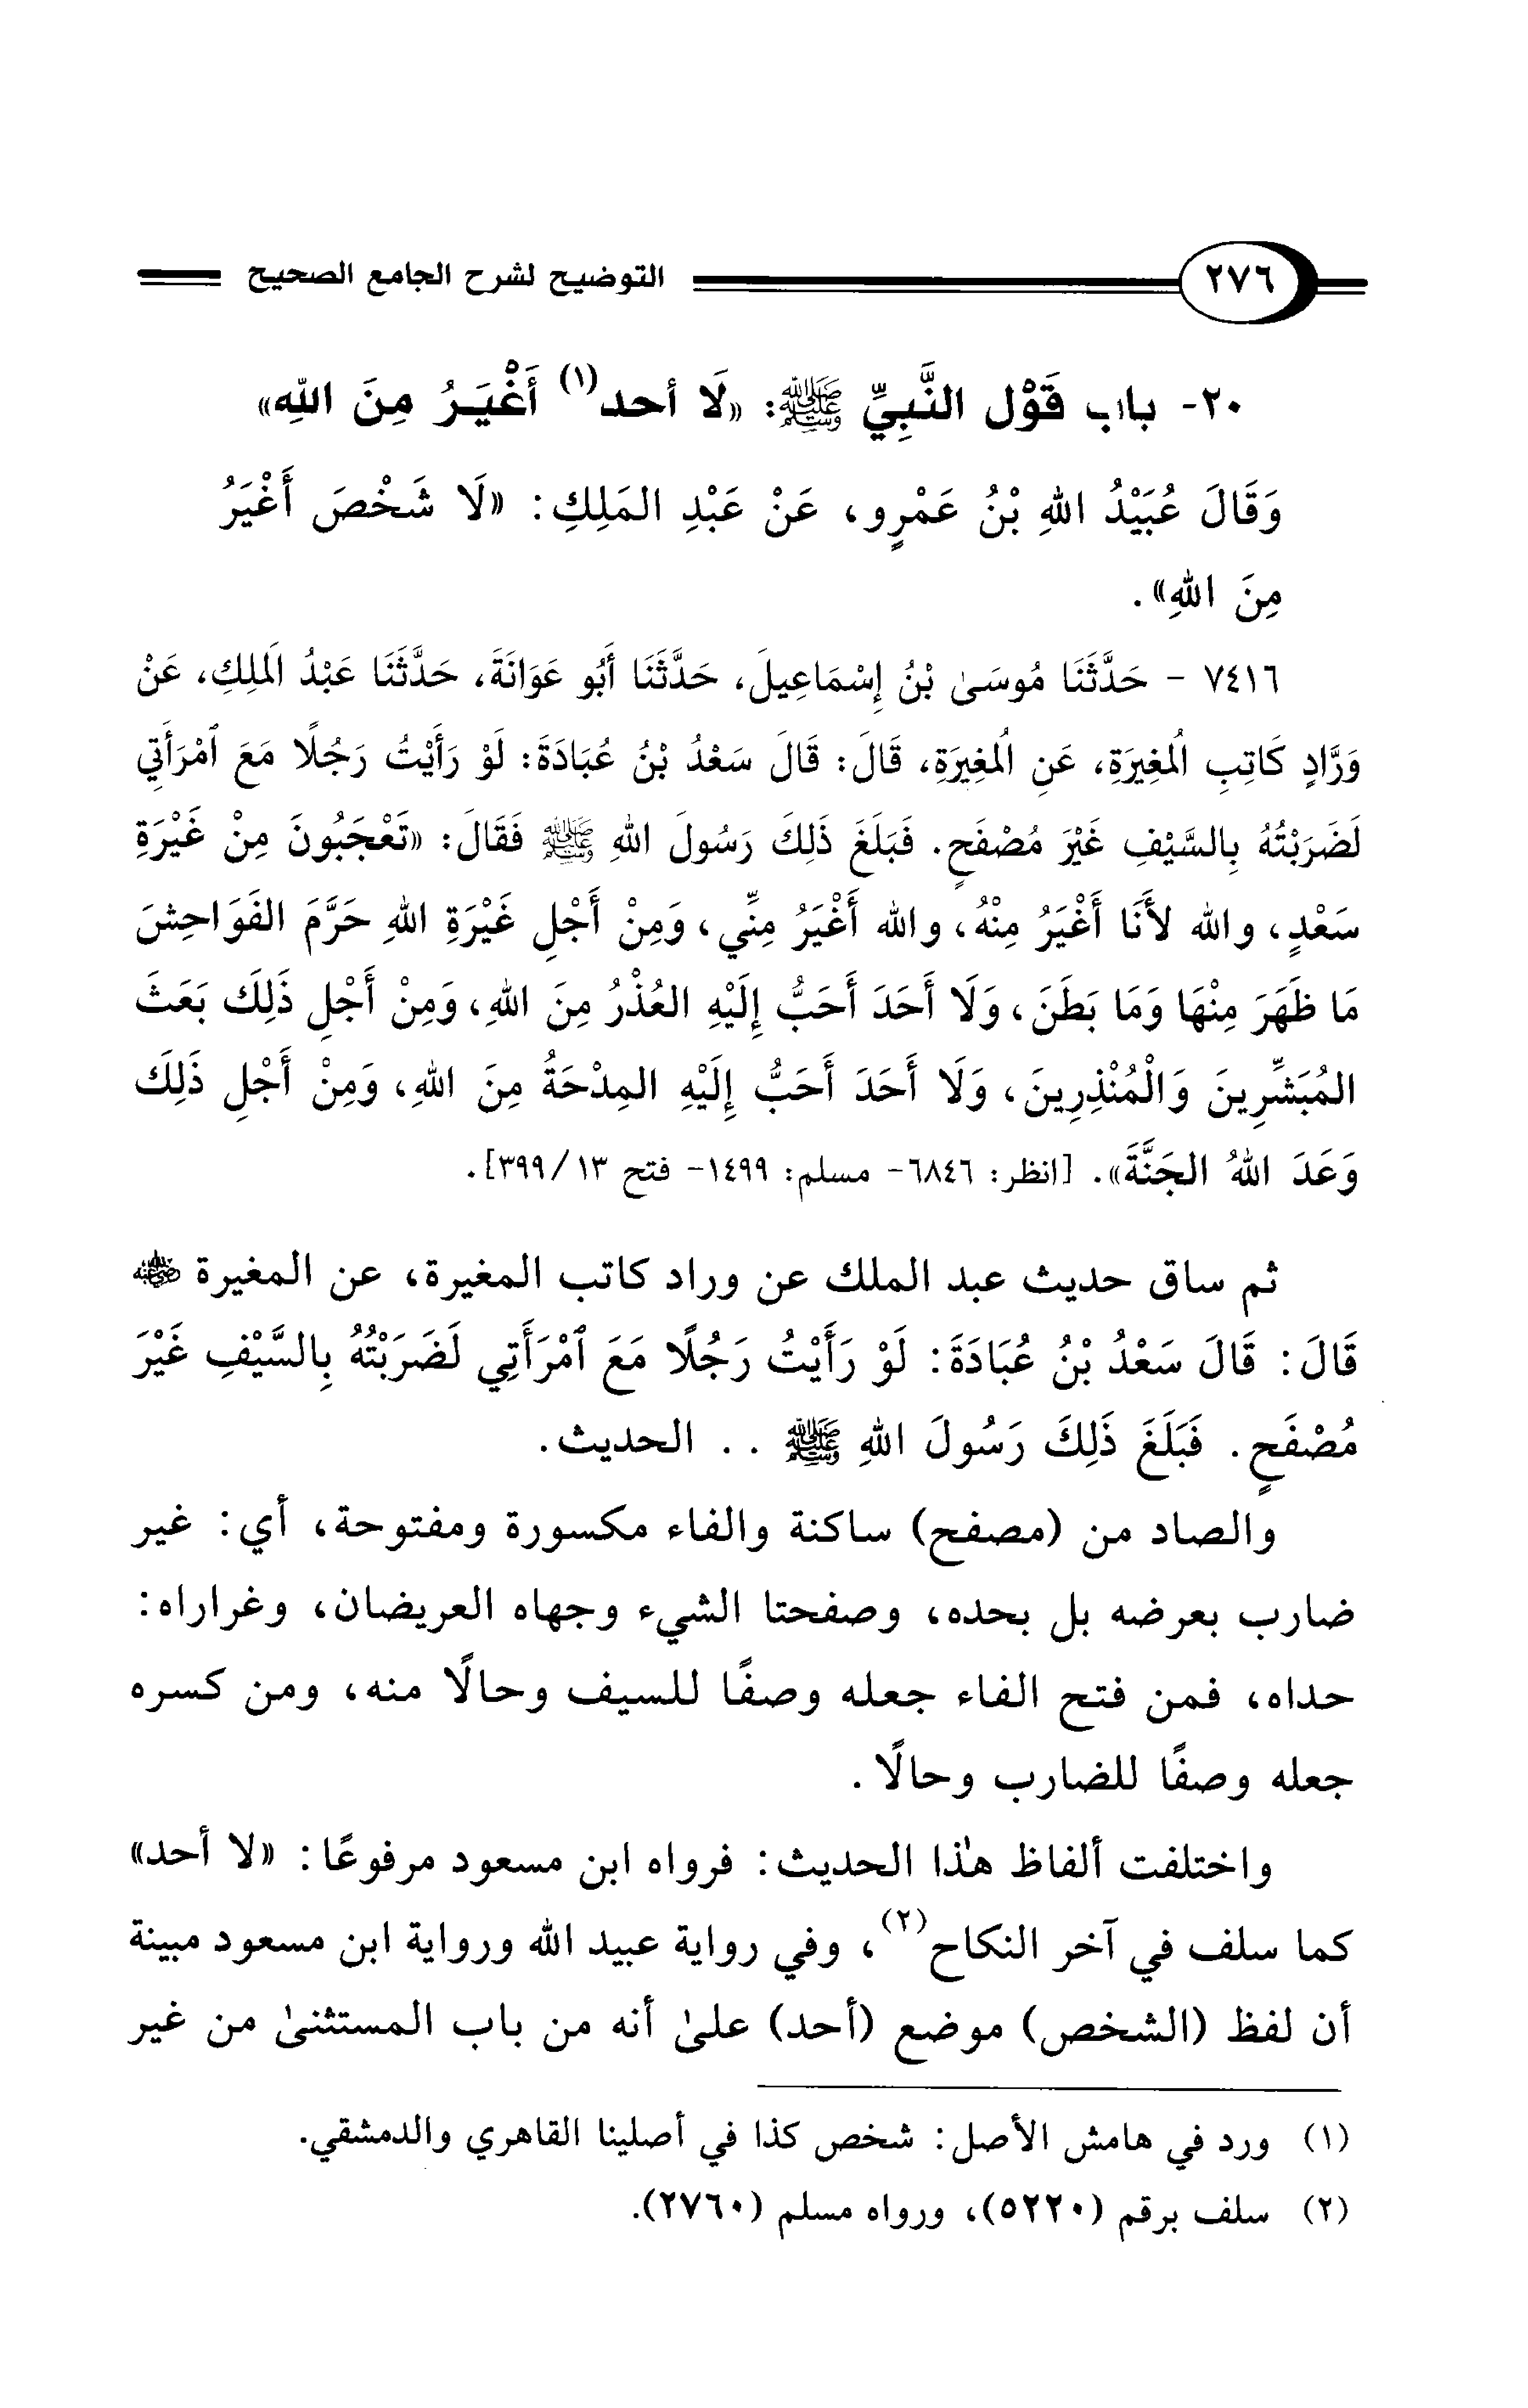 ٢٧٦ التوضيح لشرح الجامع الصحيح
٢٠- باب قَوْل النَّبِيِّ ﷺ: «لَا أحد(١) أَغْيَـرُ مِنَ اللهِ»
وَقَالَ عُبَيْدُ اللهِ بْنُ عَمْرٍو، عَنْ عَبْدِ المَلِكِ: «لَا شَخْصَ أَغْيَرُ
مِنَ اللهِ».
٧٤١٦ - حَدَّثَنَا مُوسَىٰ بْنُ إِسْمَاعِيلَ، حَدَّثَنَا أَبُو عَوَانَةَ، حَدَّثَنَا عَبْدُ اَلْمَلِكِ، عَنْ
وَرَّادٍ كَاتِبِ اُلمُغِيرَةِ، عَنِ اُلمُغِيرَةِ، قَالَ: قَالَ سَعْدُ بْنُ عُبَادَةَ: لَوْ رَأَيْتُ رَجُلًا مَعَ ٱمْرَأَتِي
لَضَرَبْتُهُ بِالسَّيْفِ غَيْرَ مُصْفَحٍ. فَبَلَغَ ذَلِكَ رَسُولَ اللهِ ﷺ فَقَالَ: «تَعْجَبُونَ مِنْ غَيْرَةِ
سَعْدٍ، والله لأَنَا أَغْيَرُ مِنْهُ، والله أَغْيَرُ مِنِّي، وَمِنْ أَجْلِ غَيْرَةِ اللهِ حَرَّمَ الفَوَاحِشَ
مَا ظَهَرَ مِنْهَا وَمَا بَطَنَ، وَلَا أَحَدَ أَحَبُّ إِلَيْهِ العُذْرُ مِنَ اللهِ، وَمِنْ أَجْلِ ذَلِكَ بَعَثَ
المُبَشِّرِينَ وَالْمُنْذِرِينَ، وَلَا أَحَدَ أَحَبُّ إِلَيْهِ المِدْحَةُ مِنَ اللهِ، وَمِنْ أَجْلِ ذَلِكَ
وَعَدَ اللهُ الجَنَّةَ». [انظر: ٦٨٤٦- مسلم: ١٤٩٩- فتح ١٣/ ٣٩٩].
ثم ساق حديث عبد الملك عن وراد كاتب المغيرة، عن المغيرة رضي الله عنه
قَالَ: قَالَ سَعْدُ بْنُ عُبَادَةَ: لَوْ رَأَيْتُ رَجُلًا مَعَ ٱمْرَأَتِي لَضَرَبْتُهُ بِالسَّيْفِ غَيْرَ
مُصْفَحٍ. فَبَلَغَ ذَلِكَ رَسُولَ اللهِ ﷺ . . الحديث.
والصاد من (مصفح) ساكنة والفاء مكسورة ومفتوحة، أي: غير
ضارب بعرضه بل بحده، وصفحتا الشيء وجهاه العريضان، وغراراه:
حداه، فمن فتح الفاء جعله وصفًا للسيف وحالًا منه، ومن كسره
جعله وصفًا للضارب وحالًا.
واختلفت ألفاظ هذا الحديث: فرواه ابن مسعود مرفوعًا: «لا أحد»
كما سلف في آخر النكاح(٢)، وفي رواية عبيد الله ورواية ابن مسعود مبينة
أن لفظ (الشخص) موضع (أحد) علىٰ أنه من باب المستثنىٰ من غير
(١) ورد في هامش الأصل: شخص كذا في أصلينا القاهري والدمشقي.
(٢) سلف برقم (٥٢٢٠)، ورواه مسلم (٢٧٦٠).